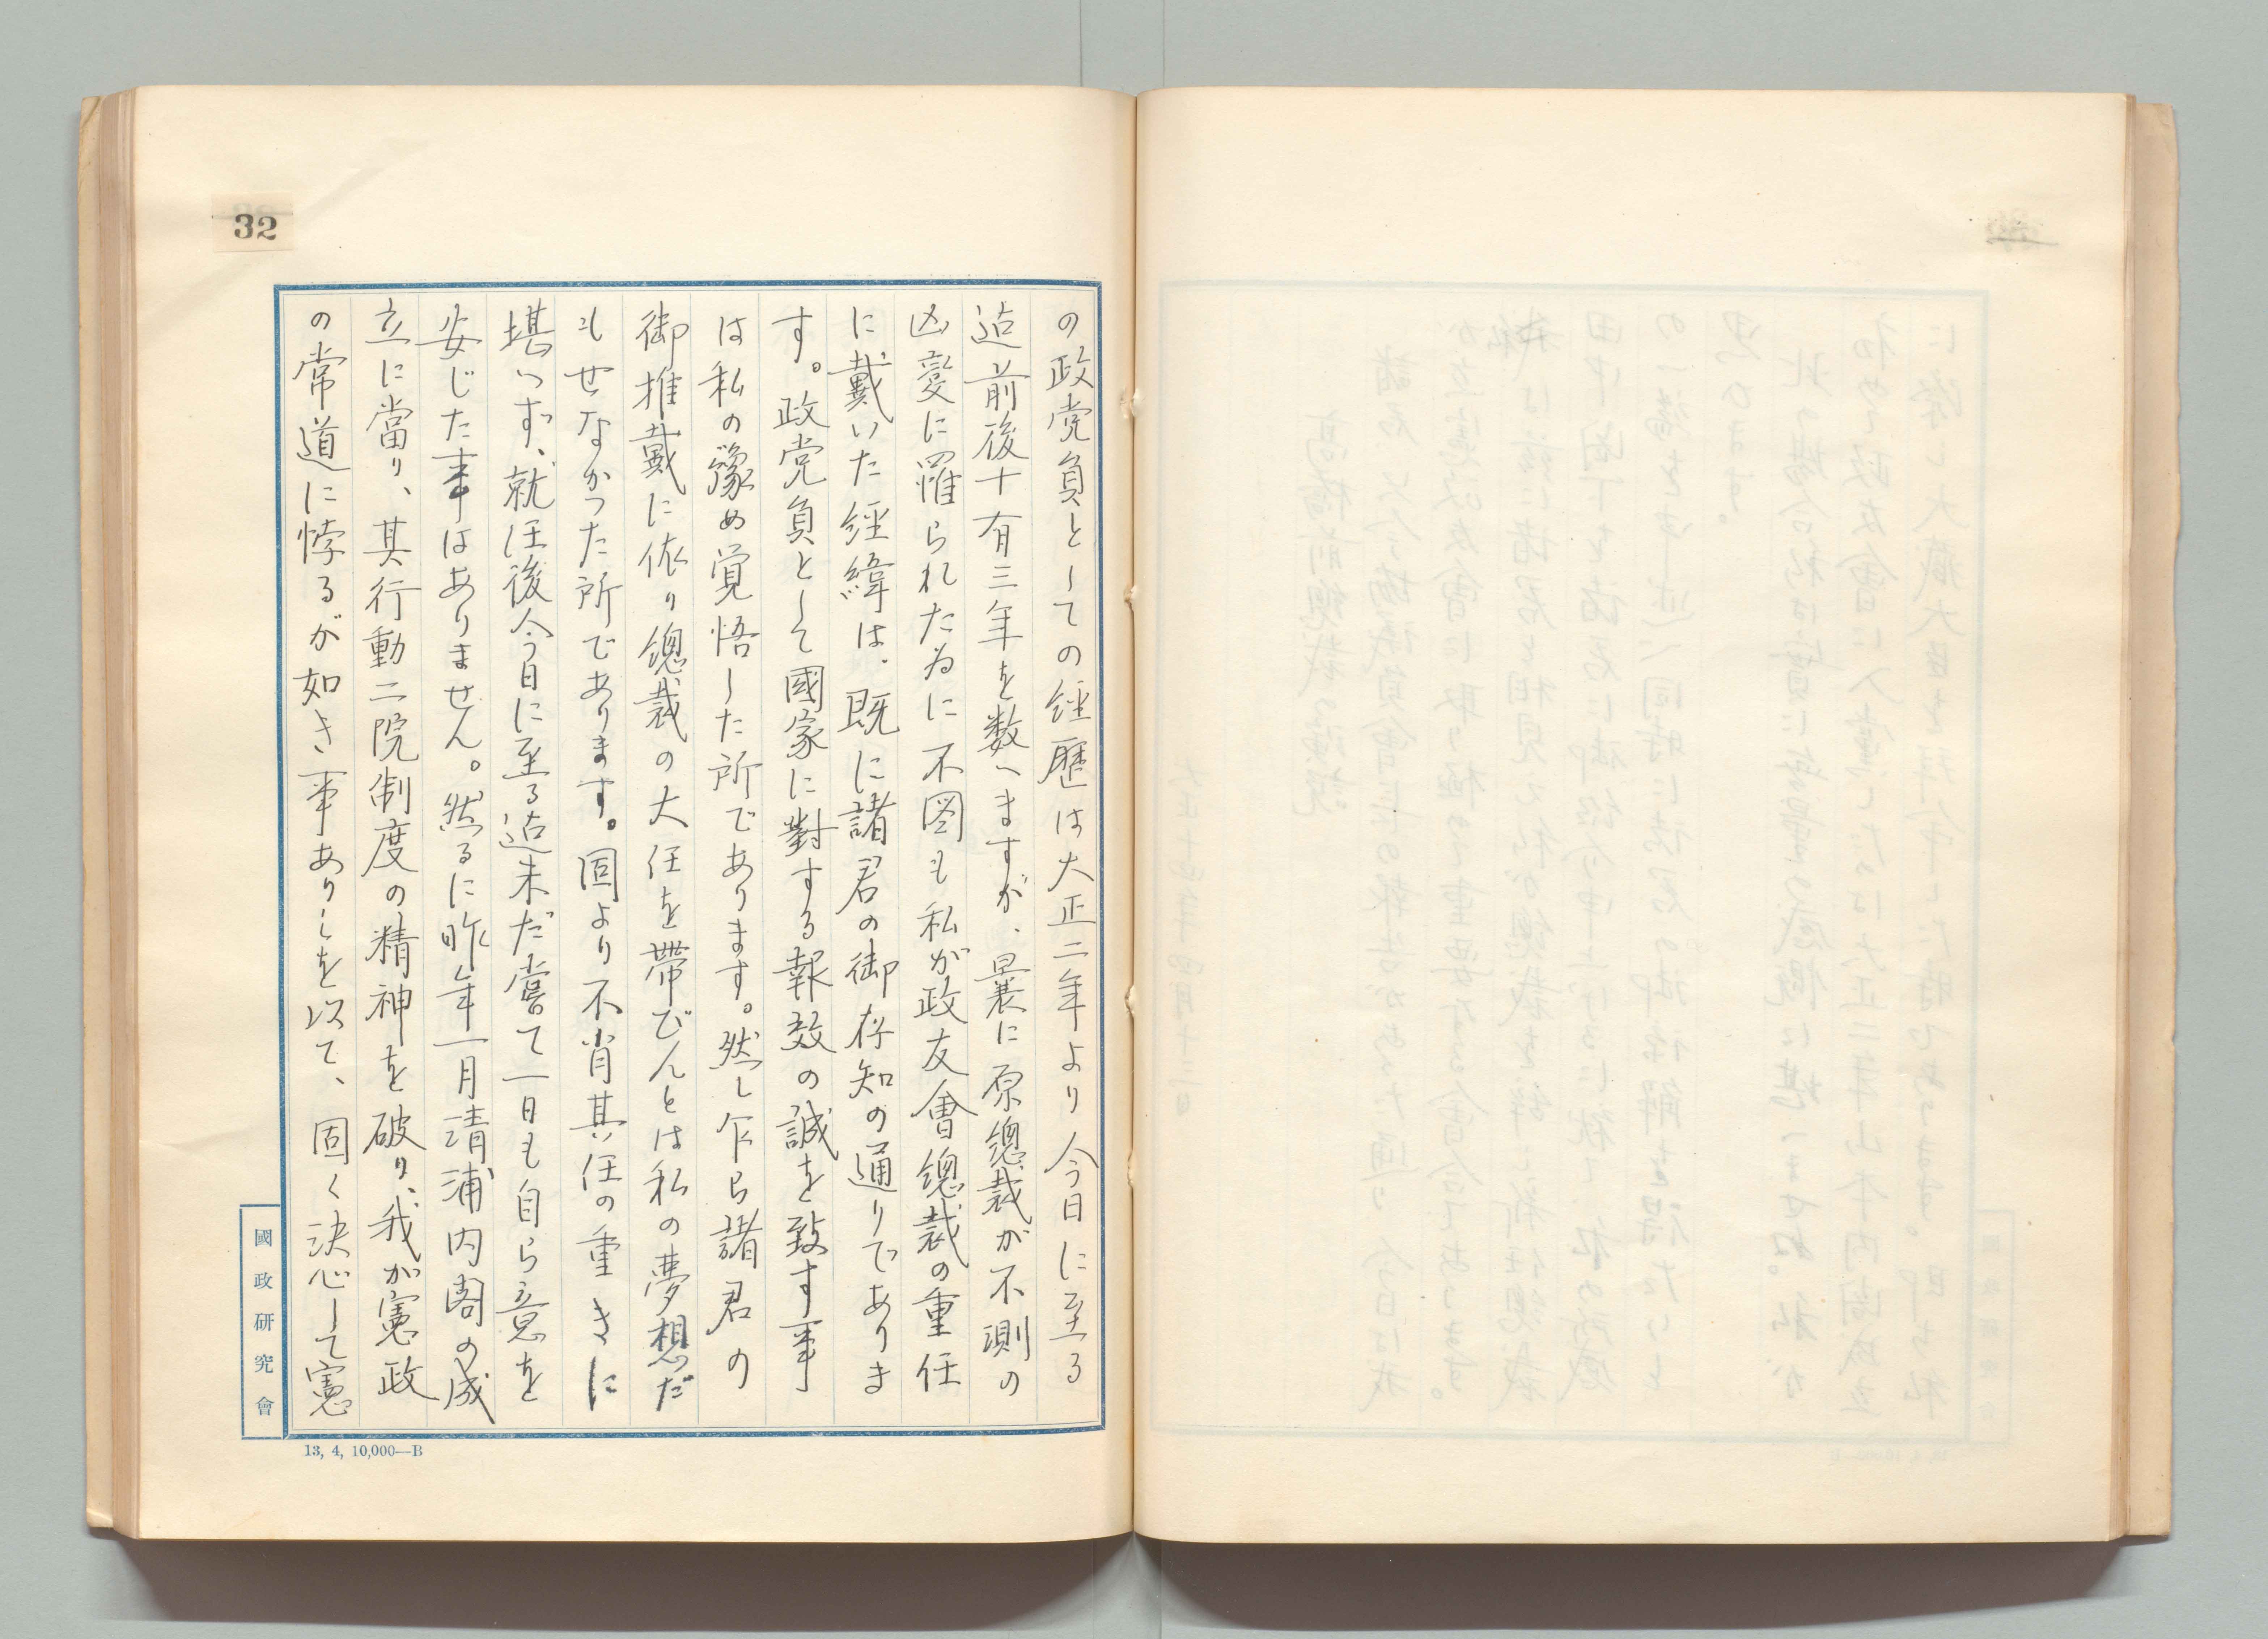 32
の政党負としての経歴は大正二年より今日に至る
迠前後十有三年を数へますが、曩に原總裁が不測の
凶変に罹られたゐに不図も私が政友會總裁の重任
に戴いた経緯は、既に諸君の御存知の通りでありま
す。政党負として國家に對する報效の誠を致す事
は私の豫め覚悟した所であります。然し乍ら諸君の
御推戴に依り總裁の大任を帯びんとは私の夢想だ
もせなかつた所であります。固より不肖其任の重きに
堪へず、就任後今日に至る迠未だ嘗て一日も自ら意を
安じた事はありません。然るに昨年一月清浦内閣の成
立に當り、其行動二院制度の精神を破り、我が憲政
の常道に悖るが如き事ありしを以て、固く決心して憲
國政研究會
13, 4, 10,000—B